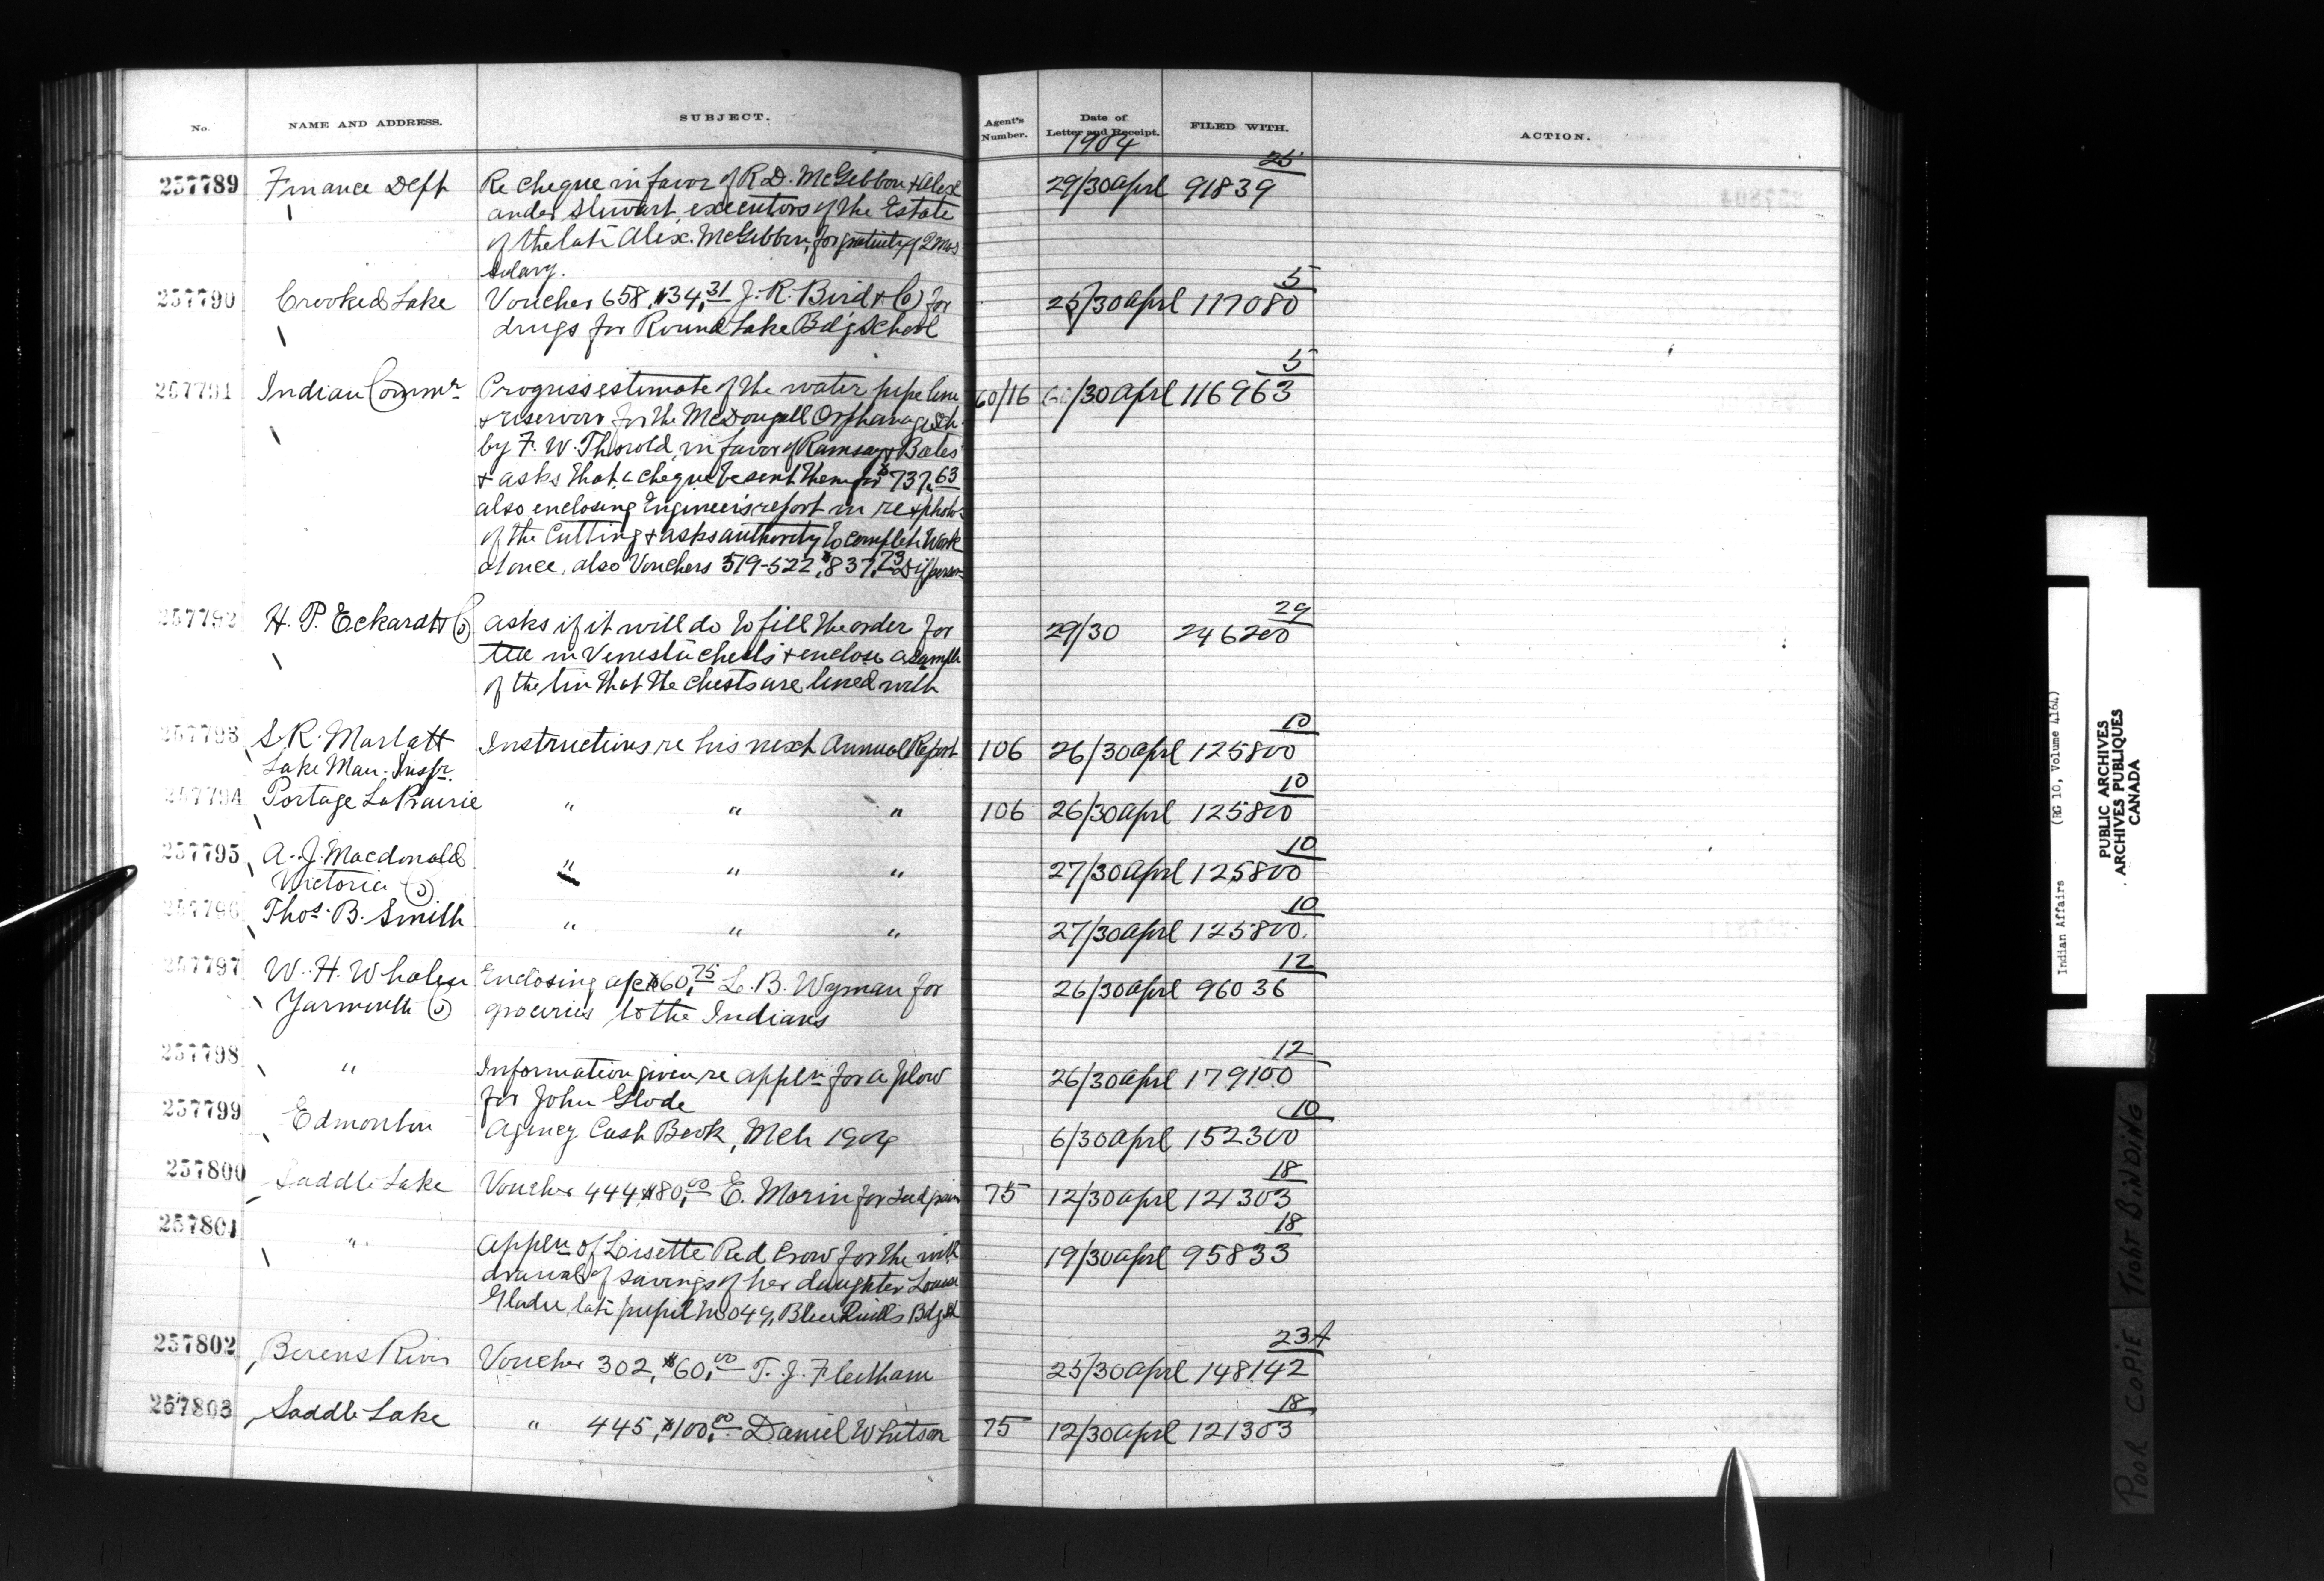 No.
NAME AND ADDRESS.
SUBJECT.
Agent's Number.
Date of Letter and Receipt.
FILED WITH.
ACTION.
1904
257789 Finance Dept Re cheque in favor of R.D. McGibbon + Alex 29/30 April 91839 25
ander Stewart, executors of the Estate
of the late Alex. McGibbon, for gratuity of 2 mos
salary.
257790 Crooked Lake Voucher 658, $34.31 J. R. Bird + Co for 25/30 April 117080 5
drugs for Round Lake Bdg School
257791 Indian Commr Progress estimate of the water pipe line 60/16 /30 April 116963 5
+ reservoir for the McDougall Orphanage Sch
by F. W. Thorold, in favor of Ramsay + Bates
+ asks that a cheque be sent them for $737.63
also enclosing Engineer's report in re + photos
of the Cutting + asks authority to complete work
at once, also Vouchers 519-522, $837.73
257792 H. P. Eckardt + Co asks if it will do to fill the order for 29/30 246200 29
tea in Venesta chests + encloses a sample
of the tin that the chests are lined with
257793 S. R. Marlatt Instructions re his next Annual Report 106 26/30 April 125800 10
Lake Man. Inspr.
257794 Portage La Prairie " " " 106 26/30 April 125800 10
257795 A. J. Macdonald " " " 27/30 April 125800 10
Victoria Co
257796 Thos. B. Smith " " " 27/30 April 125800. 10
257797 W. H. Whalen Enclosing a/c $60.75 L. B. Wyman for 26/30 April 96036 12
Yarmouth Co groceries to the Indians
257798 " Information given re appln for a plow 26/30 April 179100 12
for John Glode
257799 Edmonton Agency Cash Book, Mch 1904 6/30 April 152300 10
257800 Saddle Lake Voucher 444 $80.00 E. Morin for seed grain 75 12/30 April 121303 18
257801 " Appln of Lisette Red Crow for the with 19/30 April 95833 18
drawal of savings of her daughter Louisa
Gladu, late pupil No 049, Blue Quills Bdg Sch
257802 Berens River Voucher 302, $60.00 T. J. Fleetham 25/30 April 148142 23A
257803 Saddle Lake " 445, $100.00 Daniel Whitson 75 12/30 April 121303 18
Indian Affairs (RG 10, Volume 4164)
PUBLIC ARCHIVES
ARCHIVES PUBLIQUES
CANADA
POOR COPIE TIGHT BINDING